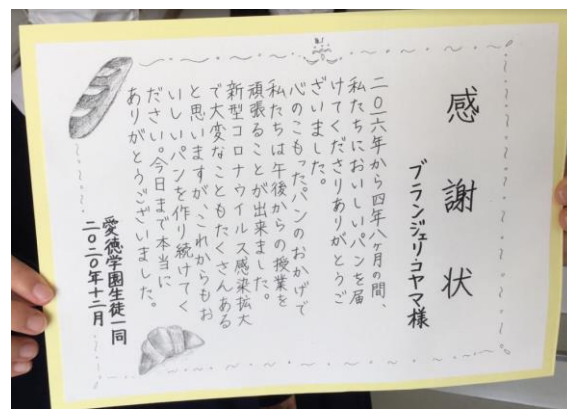 感謝状
ブランジェリ・コヤマ様
二〇一六年から四年八ヶ月の間、
私たちにおいしいパンを届
けてくださりありがとうご
ざいました。
心のこもったパンのおかげで
私たちは午後からの授業を
頑張ることが出来ました。
新型コロナウイルス感染拡大
で大変なこともたくさんある
と思いますが、これからもお
いしいパンを作り続けてく
ださい。今日まで本当に
ありがとうございました。
愛徳学園生徒一同
二〇二〇年十二月